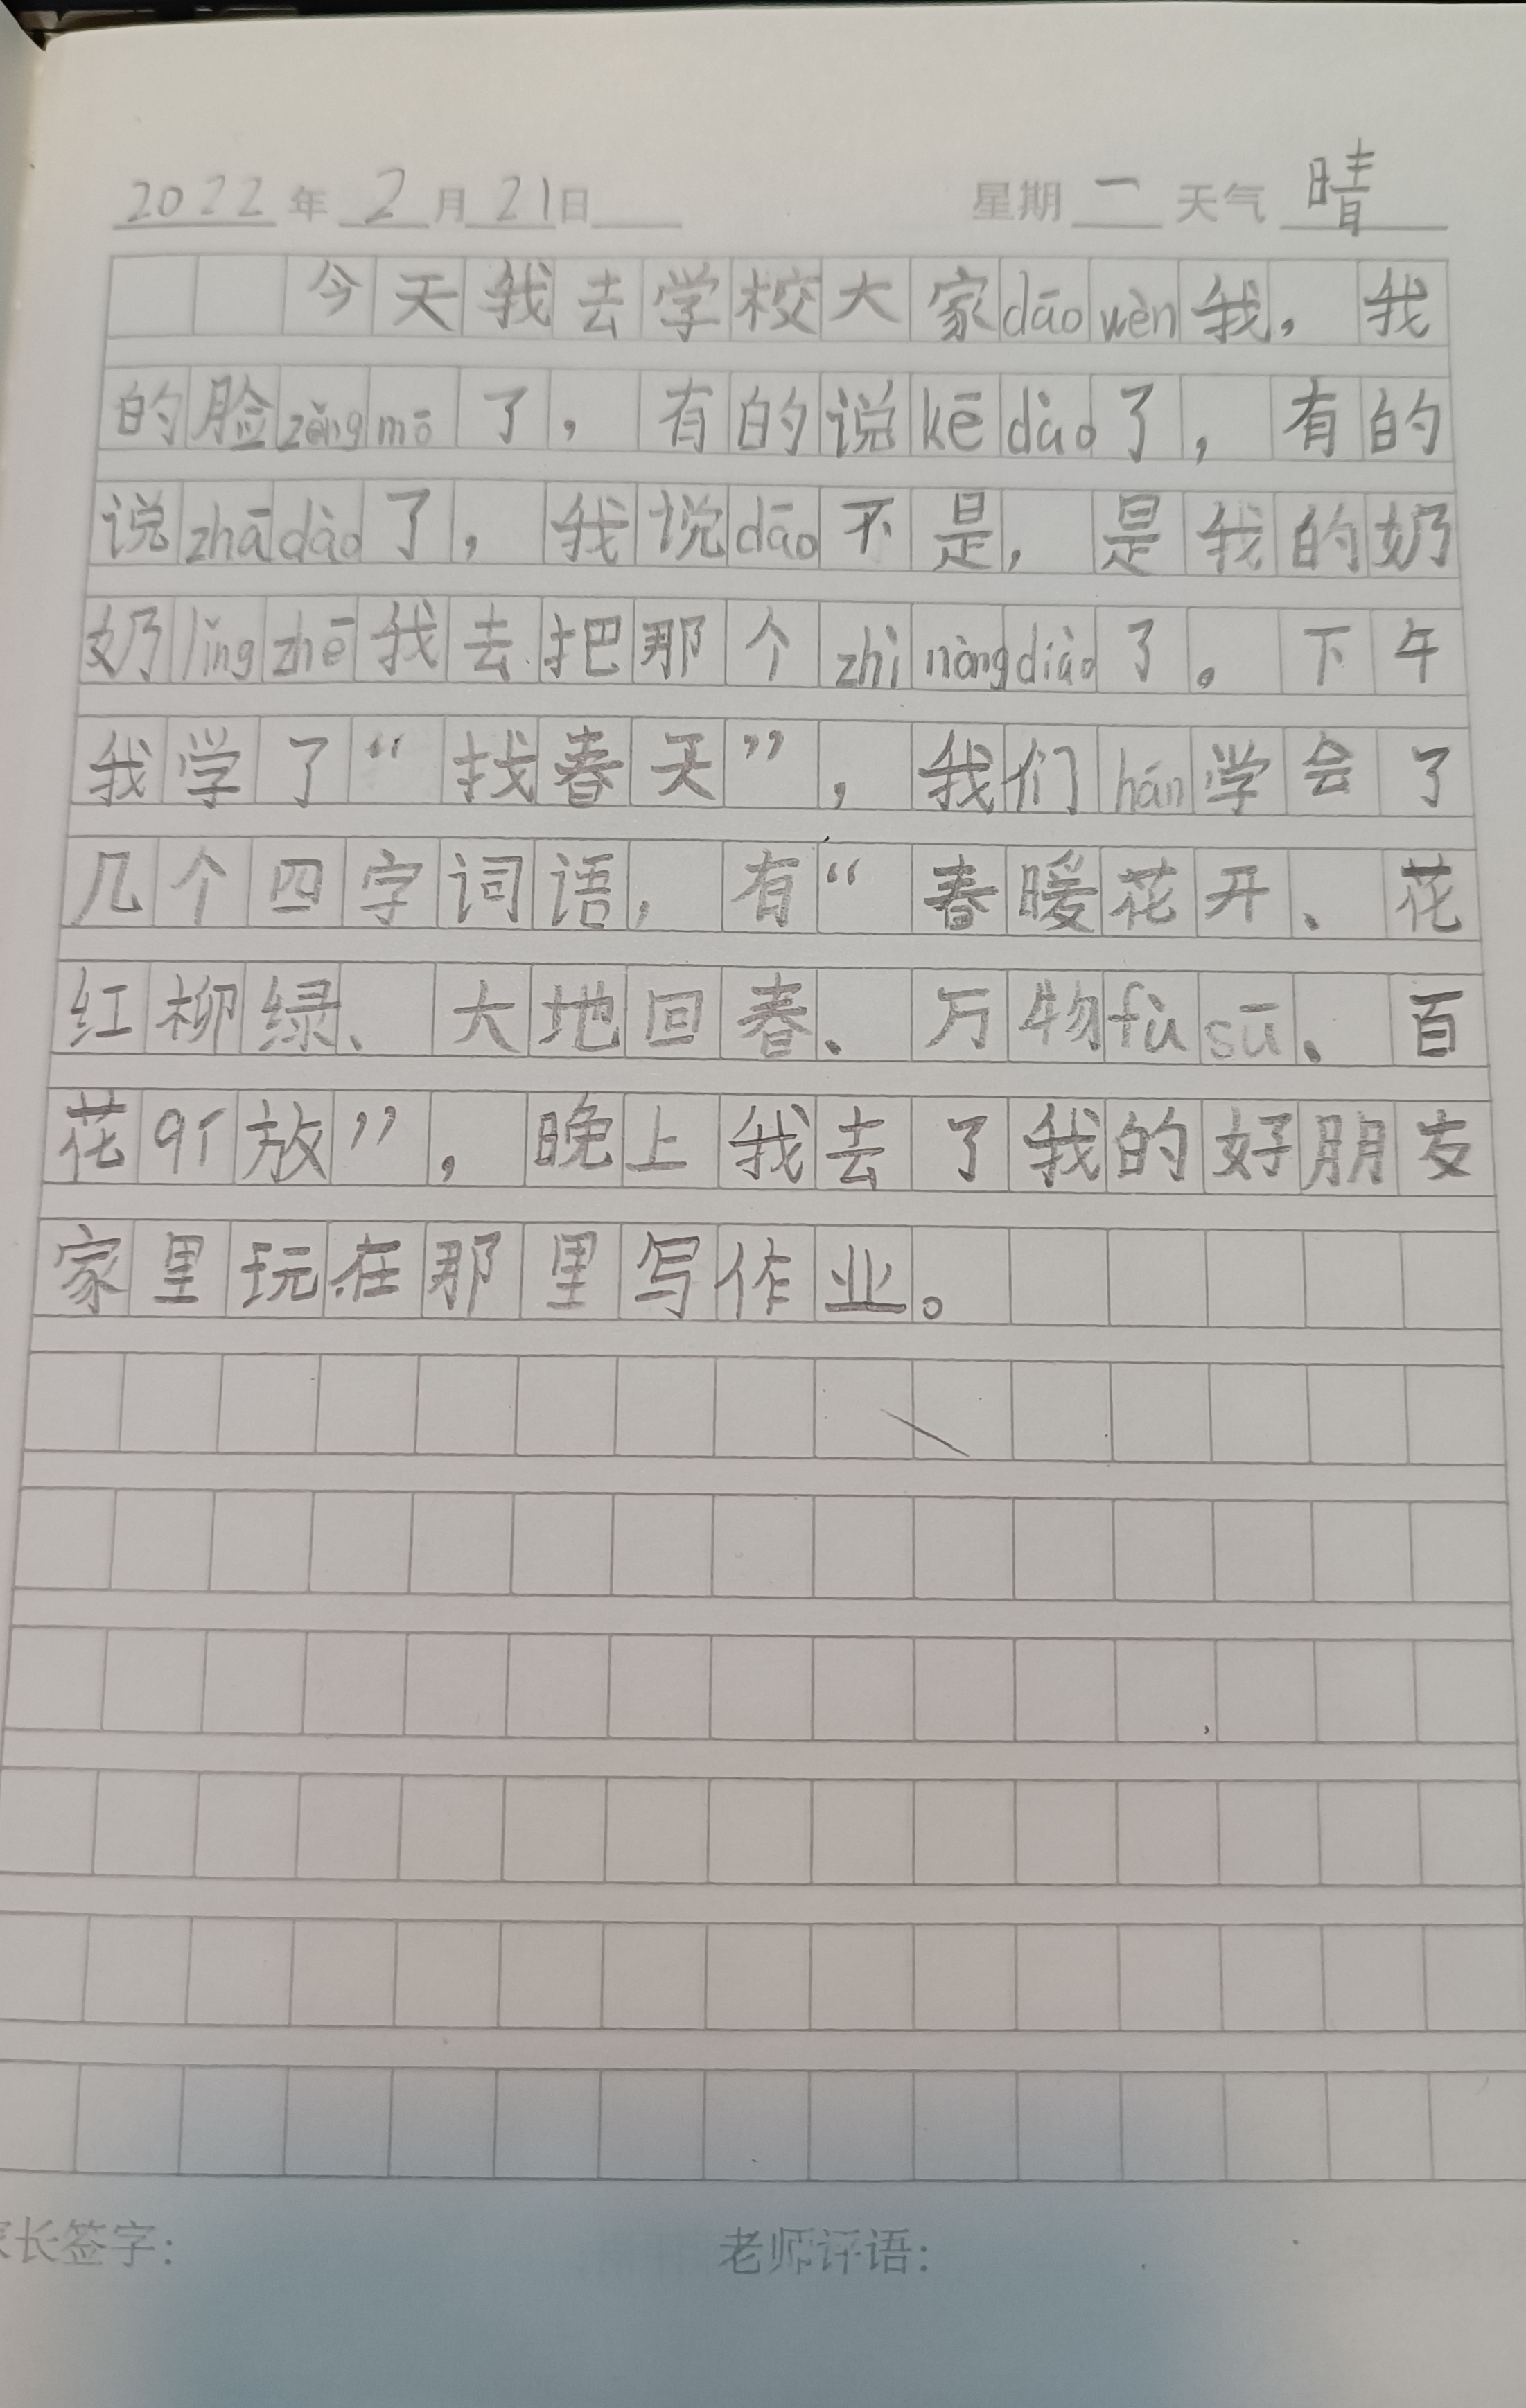 2022年2月21日 星期一天气晴
今天我去学校大家dāo wèn我，我
的脸zěng mō了，有的说kē dào了，有的
说zhā dào了，我说dāo不是，是我的奶
奶lǐng zhē我去把那个zhì nòng diào了。下午
我学了“找春天”，我们hán学会了
几个四字词语，有“春暖花开、花
红柳绿、大地回春、万物fù sū、百
花齐放”，晚上我去了我的好朋友
家里玩在那里写作业。
长签字：
老师评语：